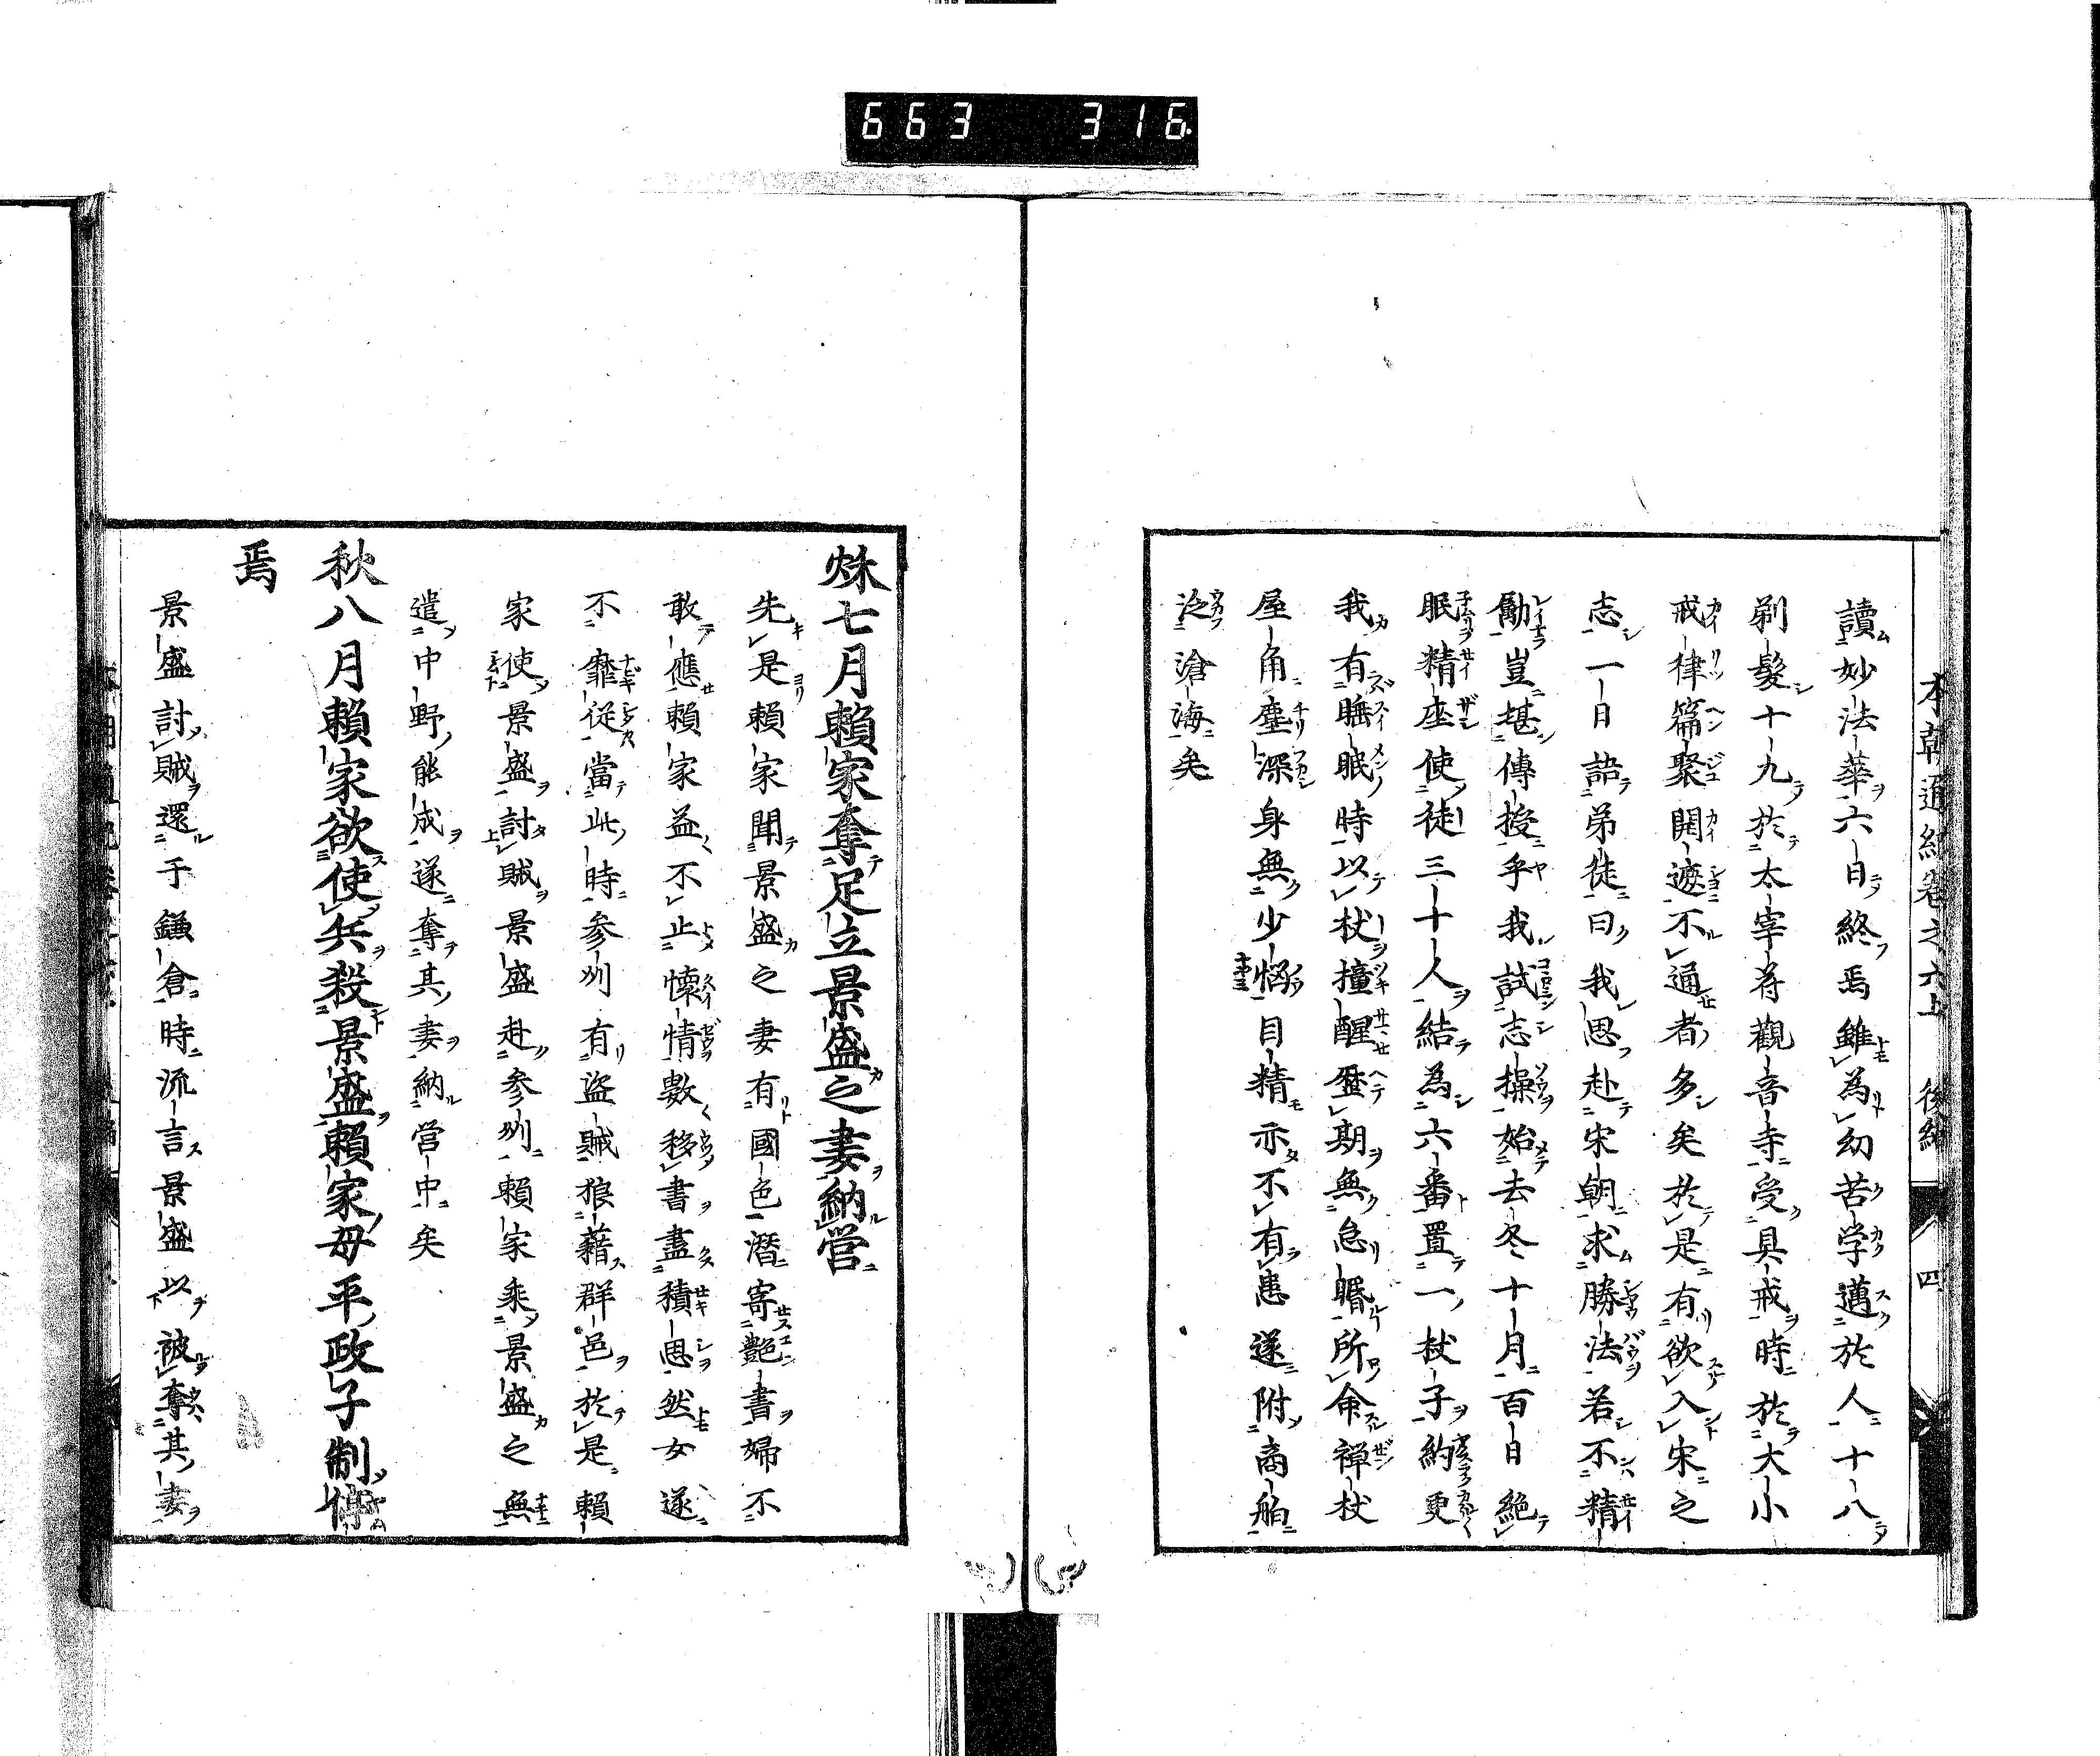 663 316
本朝通紀卷之六上 後編 四
讀妙法華六日終焉雖為幻苦学邁於人十八
剃髮十九於太宰府觀音寺受具戒時於大小
戒律篇聚開遮不通者多矣於是有欲入宋之
志一日語弟徒曰我思赴宋朝求勝法若不精
勵豈堪傳授乎我試志操始去冬十月百日絶
眠精座使徒三十人結為六番置一杖子約更
我有睡眠時以杖撞醒歴期無怠所命禅杖
屋角塵深身無少惱目精亦不有患遂附商舶
泛滄海矣
烁七月賴家奪足立景盛之妻納営
先是賴家聞景盛之妻有國色潛寄艶書婦不
敢應賴家益不止懐情數移書盡積思然女遂
不靡從當此時参刕有盜賊狼藉群邑於是賴
家使景盛討賊景盛赴参刕賴家乘景盛之無
遣中野能成遂奪其妻納営中矣
秋八月賴家欲使兵殺景盛賴家母平政子制
焉
景盛討賊還于鎌倉時流言景盛以被奪其妻